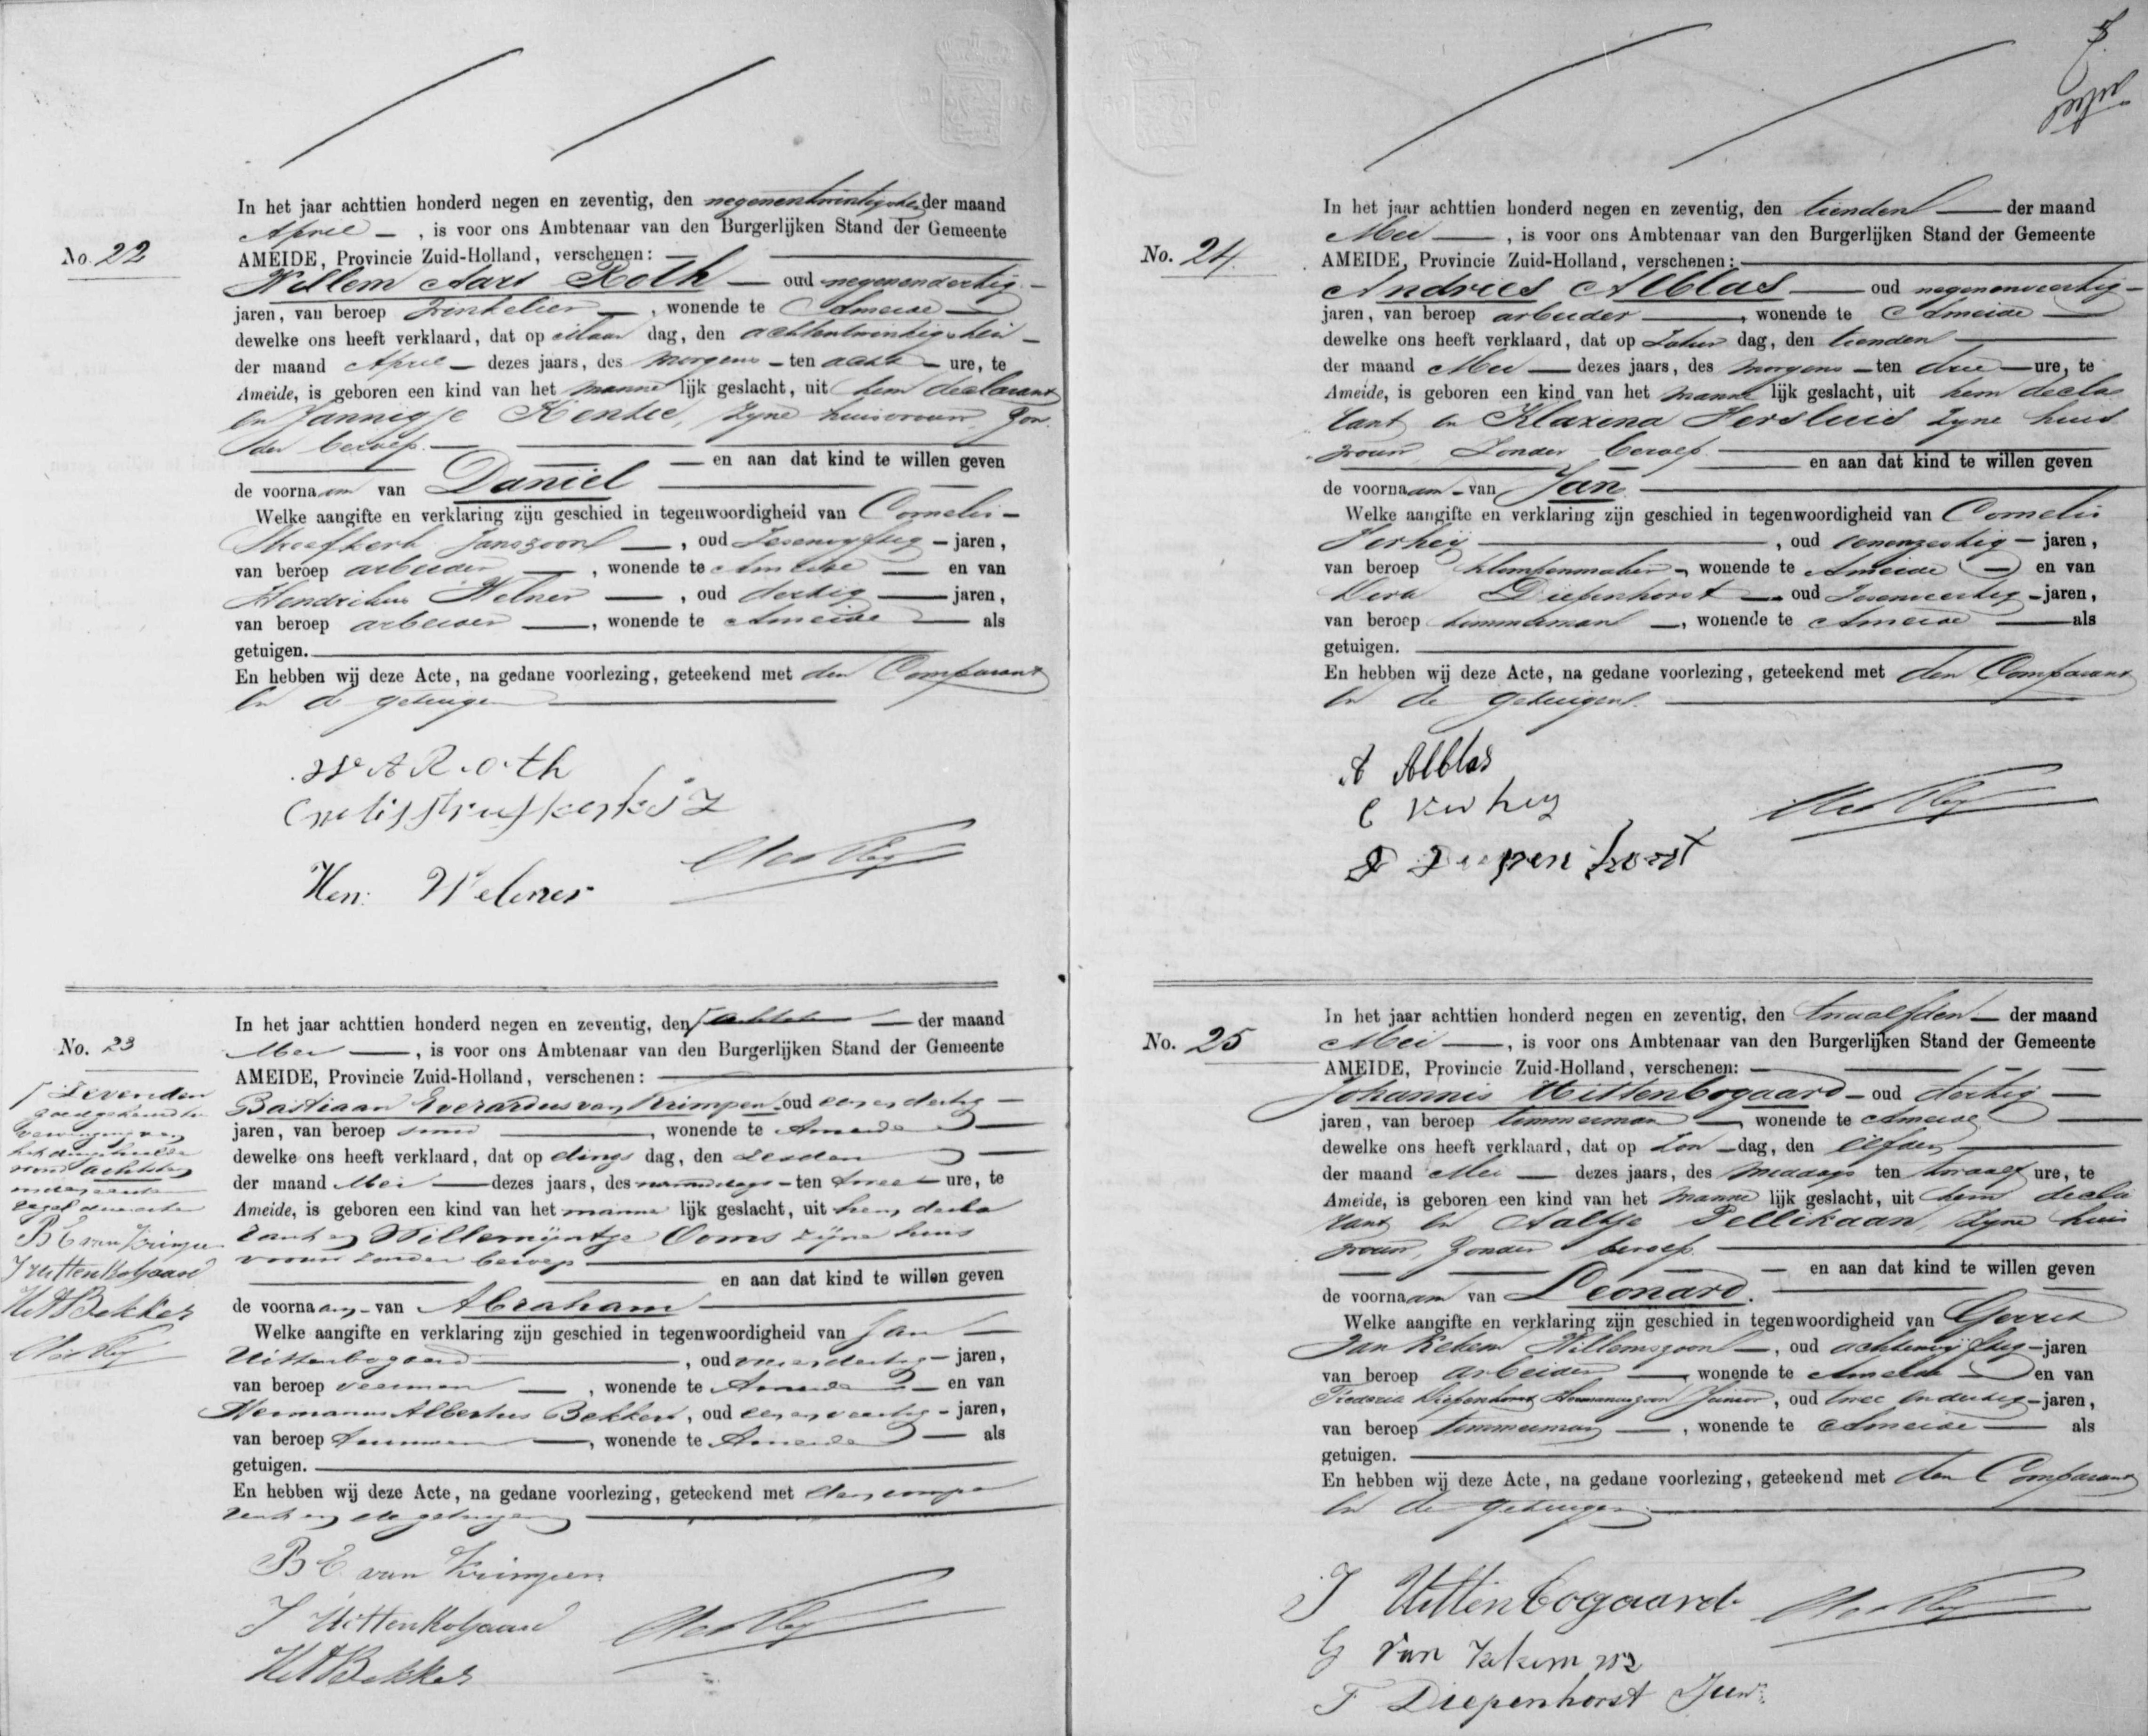 No. 22
In het jaar achttien honderd negen en zeventig, den negenentwintigsten der maand
April —, is voor ons Ambtenaar van den Burgerlijken Stand der Gemeente
AMEIDE, Provincie Zuid-Holland, verschenen: —
Willem Aart Roth — oud negenendertig —
jaren, van beroep winkelier —, wonende te Ameide —
dewelke ons heeft verklaard, dat op maan dag, den achtentwintigsten —
der maand April — dezes jaars, des morgens — ten acht — ure, te
Ameide, is geboren een kind van het manne lijk geslacht, uit hem declarant
en Jannigje Kentie, zyne huisvrouw, zon
der beroep. —
— en aan dat kind te willen geven
de voornaam van Daniel —
Welke aangifte en verklaring zijn geschied in tegenwoordigheid van Cornelis —
Streefkerk Janszoon —, oud zesenvyftig — jaren,
van beroep arbeider —, wonende te Ameide — en van
Hendrikus Welner —, oud dertig — jaren,
van beroep arbeider —, wonende te Ameide — als
getuigen. —
En hebben wij deze Acte, na gedane voorlezing, geteekend met den Comparant
en de getuigen —
W A Roth
Hen: Welner
No. 23
In het jaar achttien honderd negen en zeventig, den achtsten — der maand
Mei —, is voor ons Ambtenaar van den Burgerlijken Stand der Gemeente
AMEIDE, Provincie Zuid-Holland, verschenen: —
Bastiaan Everardus van Krimpen oud een en dertig —
jaren, van beroep smid —, wonende te Ameide —
dewelke ons heeft verklaard, dat op dings dag, den zesden —
der maand Mei — dezes jaars, des namiddags — ten twee — ure, te
Ameide, is geboren een kind van het manne lijk geslacht, uit hem decla
rant en Willemyntje Ooms zijne huis
vrouw zonder beroep —
— en aan dat kind te willen geven
de voornaam — van Abraham —
Welke aangifte en verklaring zijn geschied in tegenwoordigheid van Jan —
Uittenbogaard —, oud vierendertig — jaren,
van beroep veerman —, wonende te Ameide — en van
Hermanus Albertus Bekker, oud een en veertig — jaren,
van beroep —, wonende te Ameide — als
getuigen. —
En hebben wij deze Acte, na gedane voorlezing, geteekend met den compa
rant en de getuigen —
zevenden
goedgekeurd de
achtsten
B E van Krimpen
J Uittenbogaard
H A Bekker
B E van Krimpen
J Uittenbogaard
H A Bekker
No. 24.
In het jaar achttien honderd negen en zeventig, den tienden — der maand
Mei —, is voor ons Ambtenaar van den Burgerlijken Stand der Gemeente
AMEIDE, Provincie Zuid-Holland, verschenen: —
Andries Alblas — oud negenenveertig —
jaren, van beroep arbeider —, wonende te Ameide —
dewelke ons heeft verklaard, dat op Zatur dag, den tienden —
der maand Mei — dezes jaars, des morgens — ten drie — ure, te
Ameide, is geboren een kind van het manne lijk geslacht, uit hem decla
rant en Klazina Versluis zyne huis
vrouw, zonder beroep. —
— en aan dat kind te willen geven
de voornaam — van Jan —
Welke aangifte en verklaring zijn geschied in tegenwoordigheid van Cornelis
Verheij —, oud eenenzestig — jaren,
van beroep klompenmaker —, wonende te Ameide — en van
Dirk Diepenhorst — oud zesenveertig — jaren,
van beroep timmerman —, wonende te Ameide — als
getuigen. —
En hebben wij deze Acte, na gedane voorlezing, geteekend met den Comparant
en de getuigen. —
A Alblas
C Verheij
D Diepenhorst
No. 25
In het jaar achttien honderd negen en zeventig, den twaalfden — der maand
Mei —, is voor ons Ambtenaar van den Burgerlijken Stand der Gemeente
AMEIDE, Provincie Zuid-Holland, verschenen: —
Johannis Uittenbogaard — oud dertig —
jaren, van beroep timmerman — wonende te Ameide —
dewelke ons heeft verklaard, dat op Zon — dag, den elfden —
der maand Mei — dezes jaars, des middags ten twaalf ure, te
Ameide, is geboren een kind van het manne lijk geslacht, uit hem decla
rant en Aaltje Pellikaan, zyne huis
vrouw, zonder beroep. —
— en aan dat kind te willen geven
de voornaam van Leonard. —
Welke aangifte en verklaring zijn geschied in tegenwoordigheid van Gerrit
van Kekem Willemszoon —, oud achtenvijftig — jaren
van beroep arbeider —, wonende te Ameide — en van
Frederik Diepenhorst Hermanuszoon Junior, oud twee en dertig — jaren,
van beroep timmerman —, wonende te Ameide — als
getuigen. —
En hebben wij deze Acte, na gedane voorlezing, geteekend met den Comparant
en de getuigen —
J Uittenbogaard
G van Kekem Wz
F Diepenhorst Jun: